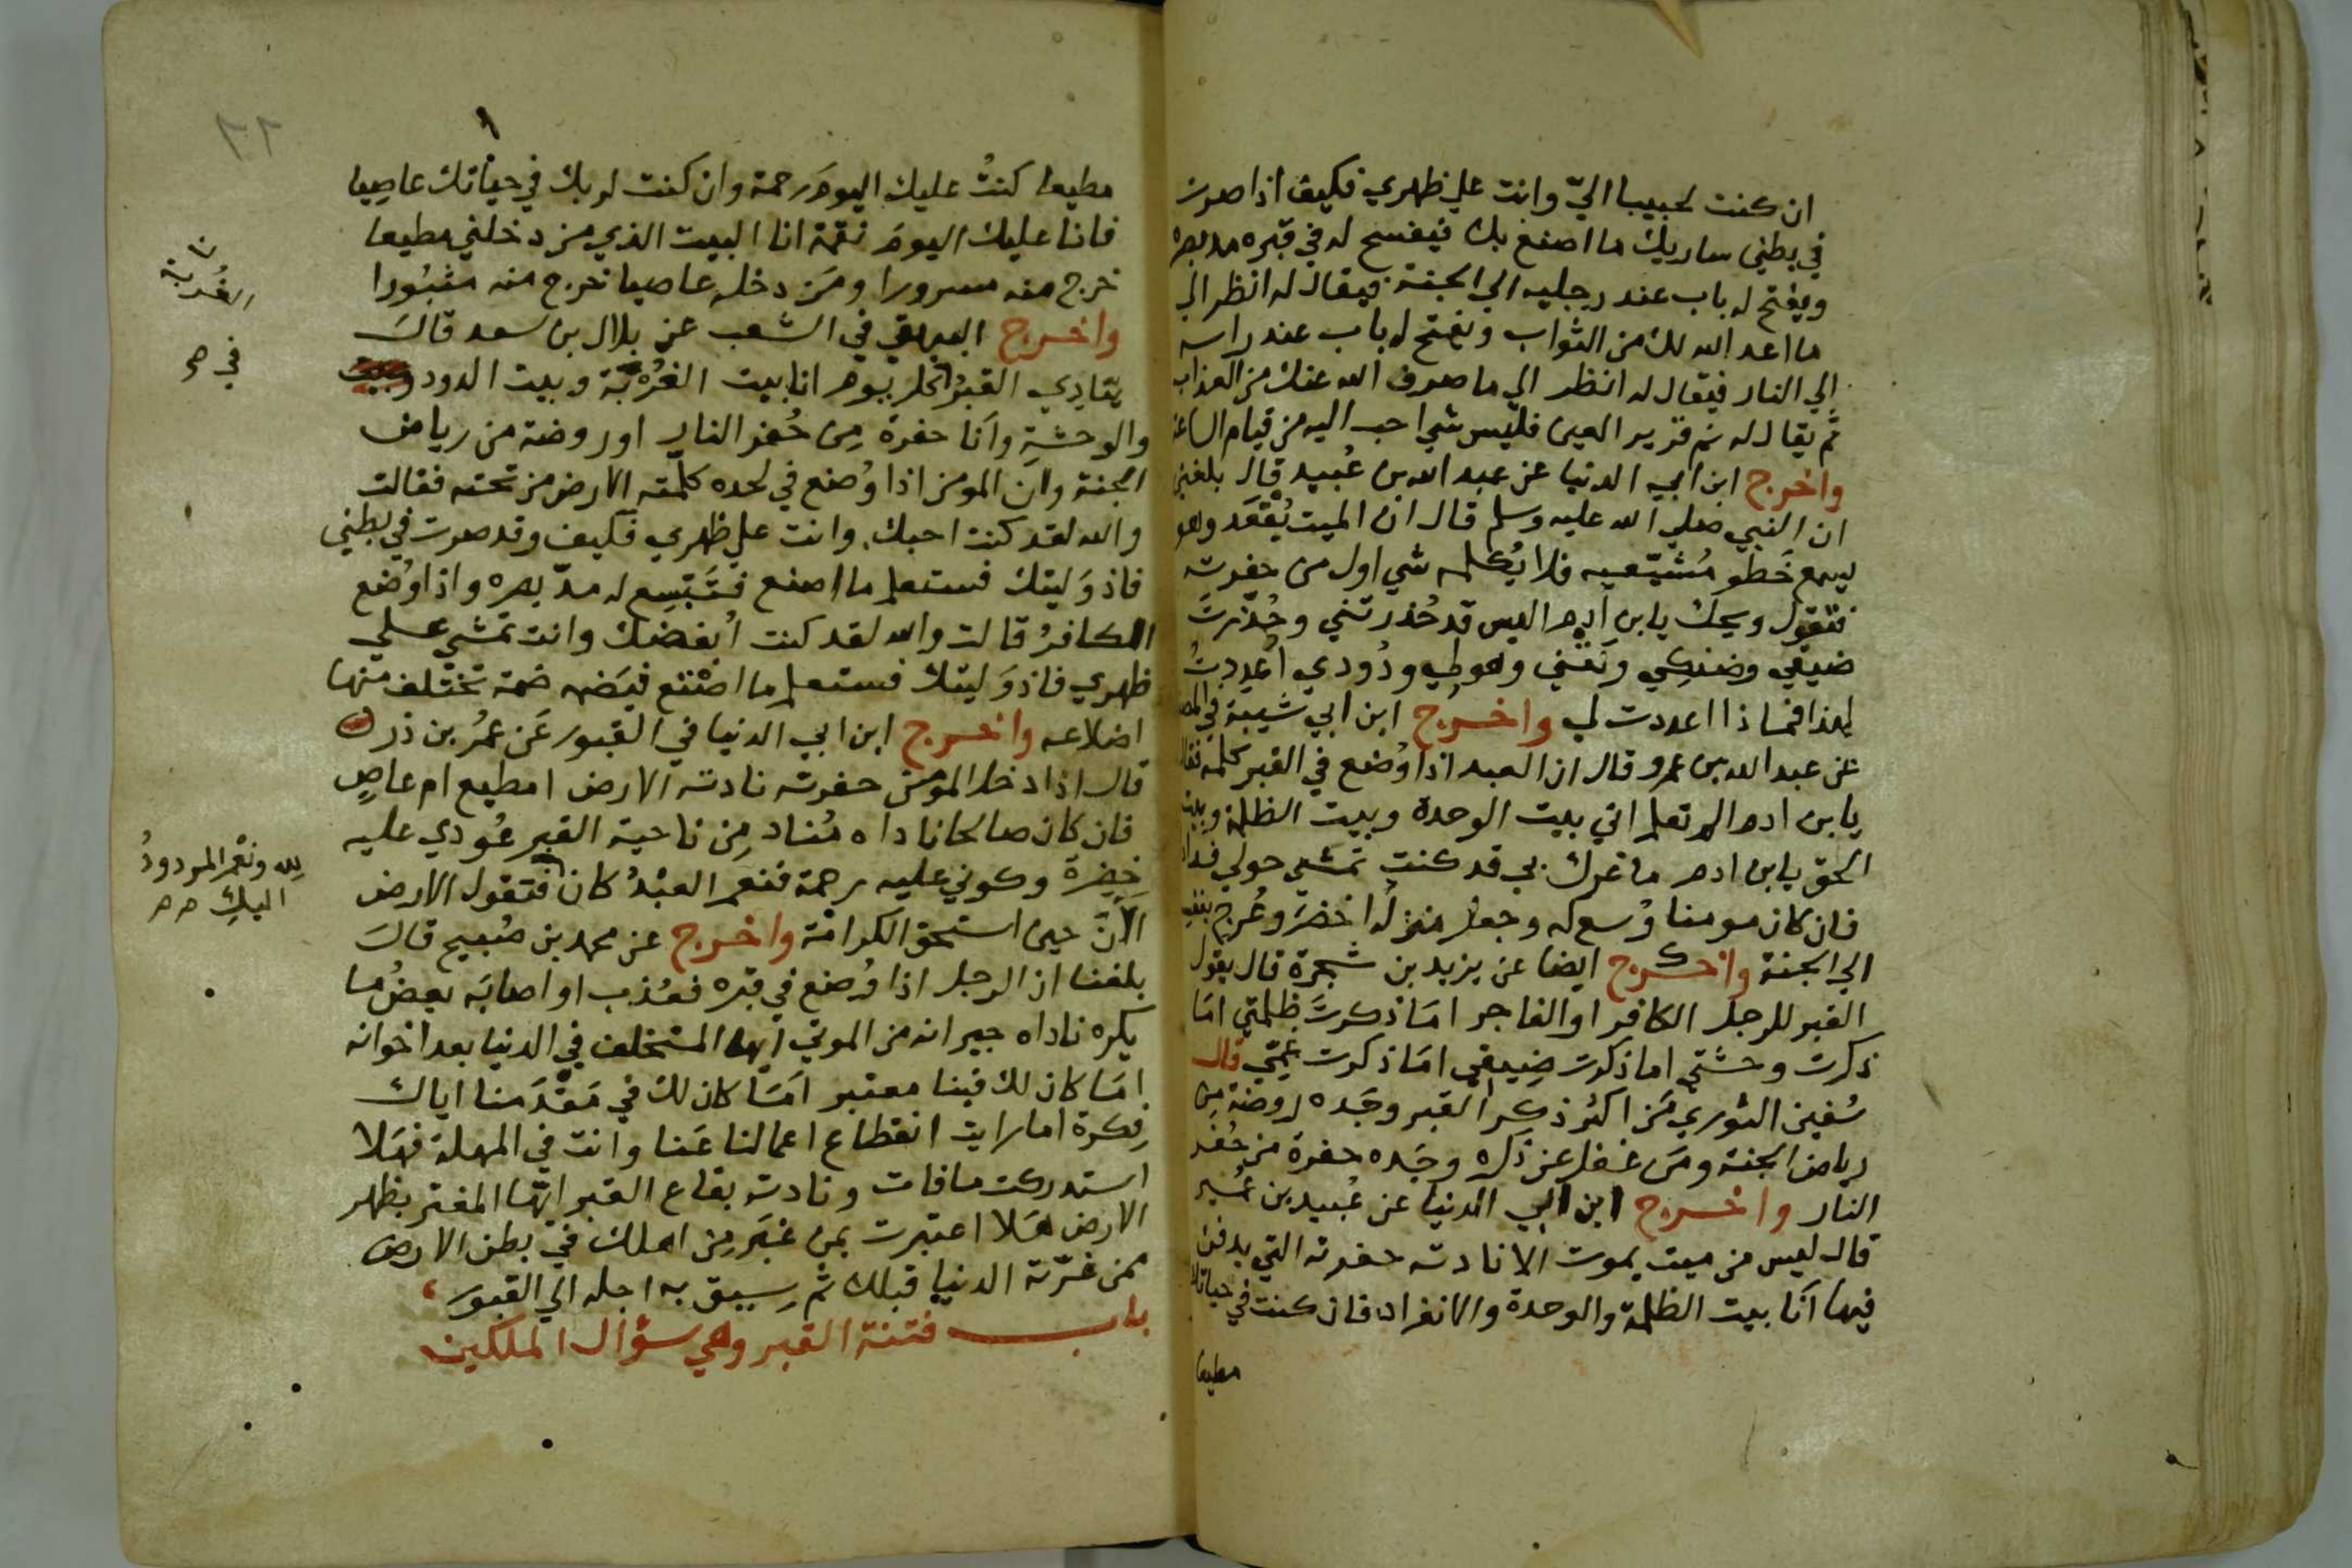 ان كنت لحبيبا اليّ وانت علي ظهري فكيف اذا صرت
في بطني ساريك ما اصنع بك فيفسح له في قبره مد بصره
ويفتح له باب عند رجليه الي الجنة فيقال له انظر الي
ما اعد الله لك من الثواب ويفتح له باب عند راسه
الي النار فيقال له انظر الي ما صرف الله عنك من العذاب
ثم يقال له نم قرير العين فليس شي احب اليه من قيام الساعة
واخرج ابن ابي الدنيا عن عبد الله بن عُبيد قال بلغني
ان النبي صلي الله عليه وسلم قال ان الميت يُقعَد وهو
يسمع خَطو مُشيّعيه فلا يُكلمه شي اول من حفرته
فتقول ويحك يا بن ادم اليس قد حُذرتني وحُذّرتَ
ضيقي وضنكي ونَتَني وهولي ودُودي اُعددتُ
لهذا فماذا اعددت لي واخرج ابن ابي شيبة في
عن عبد الله بن عمرو قال ان العبد اذا وُضع في القبر كلمه فقال
يا بن ادم الم تعلم اني بيت الوحدة وبيت الظلمة وبيت
الحق يا بن ادم ما غرك بي قد كنت تمشي حولي
فان كان مومنا وُسع له وجعل منزله اخضرَ وعُرج بنفسه
الي الجنة واخرج ايضا عن يزيد بن شجرة قال يقول
القبر للرجل الكافر او الفاجر امَا ذكرتَ ظلمتي امَا
ذكرت وحشتي اما ذكرت ضِيقي امَا ذكرت غمّي قال
سُفين الثوري مَن اكثر ذكر القبر وجَده روضة مِن
رياض الجنة ومَن غفل عن ذكره وجَده حفرة من حُفر
النار واخرج ابن ابي الدنيا عن عُبيد بن عُمير
قال ليس من ميت يموت الا نادته حفرته التي يدفن
فيها اَنا بيت الظلمة والوحدة والانفراد فان كنت في حياتك
مطيعا
٢٢
مطيعا كنتُ عليك اليومَ رحمة وان كنت لربك في حياتك عاصِيا
فانا عليك اليومَ نقمة انا البيت الذي من دخلني مطيعا
خرج منه مسرورا ومَن دخله عاصيا خرج منه مثبُورا
واخرج البيهقي في الشعب عن بلال بن سعد قالَ
ينادِي القبرُ كل يوم انا بيت الغُربة وبيت الدود
والوحشةِ واَنا حفرة مِن حُفر النار او روضة من رياض
الجنة وان المومن اذا وُضع في لحده كلمته الارض من تحته فقالت
والله لقد كنت احبك وانت علي ظهري فكيف وقد صرت في بطني
فاذ وَليتك فستعلم ما اصنع فتَتسِع له مدّ بصره واذا وُضع
الكافرُ قالت والله لقد كنت اُبغضك وانت تمشي علي
ظهري فاذ وَليتك فستعلم ما اصْنع فتَضمه ضمة تختلف منها
اضلاعه واخرج ابن ابي الدنيا في القبور عَن عمرُ بن ذر
قال اذا دخل المومن حفرته نادته الارض امطيع ام عاصٍ
فان كان صالحا ناداه مُناد مِن ناحية القبر عُودي عليه
خَضِرة وكوني عليه رحمة فنعم العبْدُ كان فتقول الارض
الآنَ حين استحق الكرامة واخرج عن محمد بن صُبيح قالَ
بلغنا ان الرجل اذا وُضع في قبره فعُذب او اصابَه بعضُ ما
يكره ناداه جيرانه من الموتي ايها المتخلف في الدنيا بعد اخوانه
امَا كان لك فينا معتبر امَا كان لك في مَقْدَمنا اياك
فِكرة اما رايت انقطاع اعمالنا عَنا وانت في المهلة فهَلا
استدركت ما فات ونادته بقاع القبر ايّها المغتر بظهر
الارض هَلا اعتبرت بمن غبَر مِن اهلك في بطن الارض
ممن غرّته الدنيا قبلك ثم سِيق به اجله الي القبور
باب فتنة القبر وهي سؤال الملكين
الغُربة
لله ونعم المردودُ
اليكِ